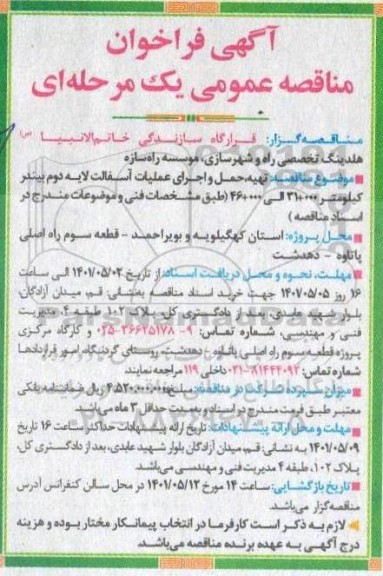 آگهی فراخوان
مناقصه عمومی یک مرحله‌ای
مناقصه‌گزار: قرارگاه سازندگی خاتم‌الانبیا (ص)
هلدینگ تخصصی راه و شهرسازی، موسسه راه‌سازه
موضوع مناقصه: تهیه، حمل و اجرای عملیات آسفالت لایه دوم بیندر
کیلومتر ۳۱+۰۰۰ الی ۴۶+۰۰۰ (طبق مشخصات فنی و موضوعات مندرج در
اسناد مناقصه)
محل پروژه: استان کهگیلویه و بویراحمد - قطعه سوم راه اصلی
پاتاوه - دهدشت
مهلت، نحوه و محل دریافت اسناد: از تاریخ ۱۴۰۱/۰۵/۰۲ الی ساعت
۱۶ روز ۱۴۰۱/۰۵/۰۵ جهت خرید اسناد مناقصه به‌نشانی: قم، میدان آزادگان،
بلوار شهید عابدی، بعد از دادگستری کل، پلاک ۱۰۲، طبقه ۴، مدیریت
فنی و مهندسی، شماره تماس: ۹-۳۶۶۲۵۱۷۸-۰۲۵ و کارگاه مرکزی
پروژه قطعه سوم راه اصلی پاتاوه - دهدشت، روستای گردنگاه، امور قراردادها
شماره تماس: ۸۱۴۴۴۰۹۲-۰۲۱ داخلی ۱۱۹ مراجعه نمایند
میزان سپرده شرکت در مناقصه: مبلغ ریال ضمانتنامه بانکی
معتبر طبق فرمت مندرج در اسناد و به مدت حداقل ۳ ماه می‌باشد
مهلت و محل ارائه پیشنهادات: تاریخ ارائه پیشنهادات حداکثر ساعت ۱۶ تاریخ
۱۴۰۱/۰۵/۰۹ به نشانی: قم، میدان آزادگان بلوار شهید عابدی، بعد از دادگستری کل،
پلاک ۱۰۲، طبقه ۴ مدیریت فنی و مهندسی می‌باشد.
تاریخ بازگشایی: ساعت ۱۴ مورخ ۱۴۰۱/۰۵/۱۲ در محل سالن کنفرانس آدرس
مناقصه‌گزار می‌باشد.
لازم به ذکر است کارفرما در انتخاب پیمانکار مختار بوده و هزینه
درج آگهی به عهده برنده مناقصه می‌باشد.